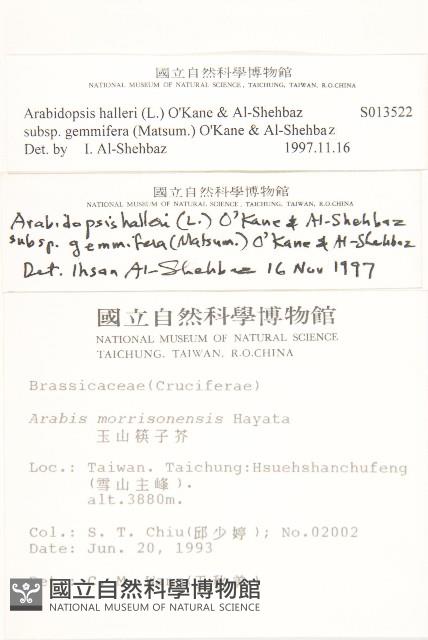 國立自然科學博物館
NATIONAL MUSEUM OF NATURAL SCIENCE, TAICHUNG, TAIWAN, R.O.CHINA
Arabidopsis halleri (L.) O'Kane & Al-Shehbaz S013522
subsp. gemmifera (Matsum.) O'Kane & Al-Shehbaz
Det. by I. Al-Shehbaz 1997.11.16
國立自然科學博物館
NATIONAL MUSEUM OF NATURAL SCIENCE, TAICHUNG, TAIWAN, R.O.CHINA
Arabidopsis halleri (L.) O'Kane & Al-Shehbaz
subsp. gemmifera (Matsum.) O'Kane & Al-Shehbaz
Det. Ihsan Al-Shehbaz 16 Nov 1997
國立自然科學博物館
NATIONAL MUSEUM OF NATURAL SCIENCE
TAICHUNG, TAIWAN, R.O.CHINA
Brassicaceae(Cruciferae)
Arabis morrisonensis Hayata
玉山筷子芥
Loc.: Taiwan. Taichung:Hsuehshanchufeng
(雪山主峰).
alt.3880m.
Col.: S. T. Chiu(邱少婷); No.02002
Date: Jun. 20, 1993
國立自然科學博物館
NATIONAL MUSEUM OF NATURAL SCIENCE